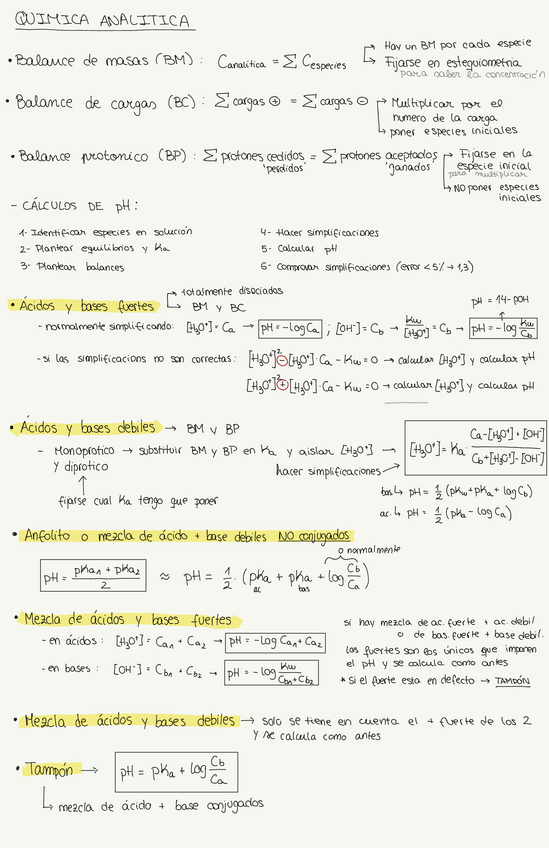 QUIMICA ANALITICA
• Balance de masas (BM) : Canalítica = Σ Cespecies
→ Hay un BM por cada especie
→ Fijarse en estequiometria
para saber la concentración
• Balance de cargas (BC) : Σ cargas ⊕ = Σ cargas ⊖
→ Multiplicar por el
numero de la carga
→ poner especies iniciales
• Balance protonico (BP) : Σ protones cedidos = Σ protones aceptados
'perdidos' 'ganados'
→ Fijarse en la
especie inicial
para multiplicar
→ NO poner especies
iniciales
- CÁLCULOS DE pH :
1- Identificar especies en solución
2- Plantear equilibrios y Ka
3- Plantear balances
4- Hacer simplificaciones
5- Calcular pH
6- Comprovar simplificaciones (error < 5% → 1,3)
• Ácidos y bases fuertes
→ totalmente disociados
→ BM y BC
pH = 14 - pOH
- normalmente simplificando: [H₃O⁺] = Ca → pH = -log Ca ; [OH⁻] = Cb → Kw/[H₃O⁺] = Cb → pH = -log Kw/Cb
- si las simplificacions no son correctas: [H₃O⁺]² ⊖ [H₃O⁺]·Ca - Kw = 0 → calcular [H₃O⁺] y calcular pH
[H₃O⁺]² ⊕ [H₃O⁺]·Ca - Kw = 0 → calcular [H₃O⁺] y calcular pH
• Ácidos y bases debiles → BM y BP
- Monoprotico → substituir BM y BP en Ka y aislar [H₃O⁺] → [H₃O⁺] = Ka · Ca-[H₃O⁺]+[OH⁻] / Cb+[H₃O⁺]-[OH⁻]
y diprotico
hacer simplificaciones
fijarse cual Ka tengo que poner
bas ↳ pH = 1/2 (pKw + pKa + log Cb)
ac. ↳ pH = 1/2 (pKa - log Ca)
• Anfolito o mezcla de ácido + base debiles NO conjugados
o normalmente
pH = pKa₁ + pKa₂ / 2 ≈ pH = 1/2 · (pKa + pKa + log Cb/Ca)
ac bas
• Mezcla de ácidos y bases fuertes
- en ácidos : [H₃O⁺] = Ca₁ + Ca₂ → pH = -log Ca₁+Ca₂
- en bases : [OH⁻] = Cb₁ + Cb₂ → pH = -log Kw/Cb₁+Cb₂
si hay mezcla de ac. fuerte + ac. debil
o de bas. fuerte + base debil.
Los fuertes son los únicos que imponen
el pH y se calcula como antes
* Si el fuerte esta en defecto → TAMPÓN
• Mezcla de ácidos y bases debiles → solo se tiene en cuenta el + fuerte de los 2
y se calcula como antes
• Tampón → pH = pKa + log Cb/Ca
↳ mezcla de ácido + base conjugados